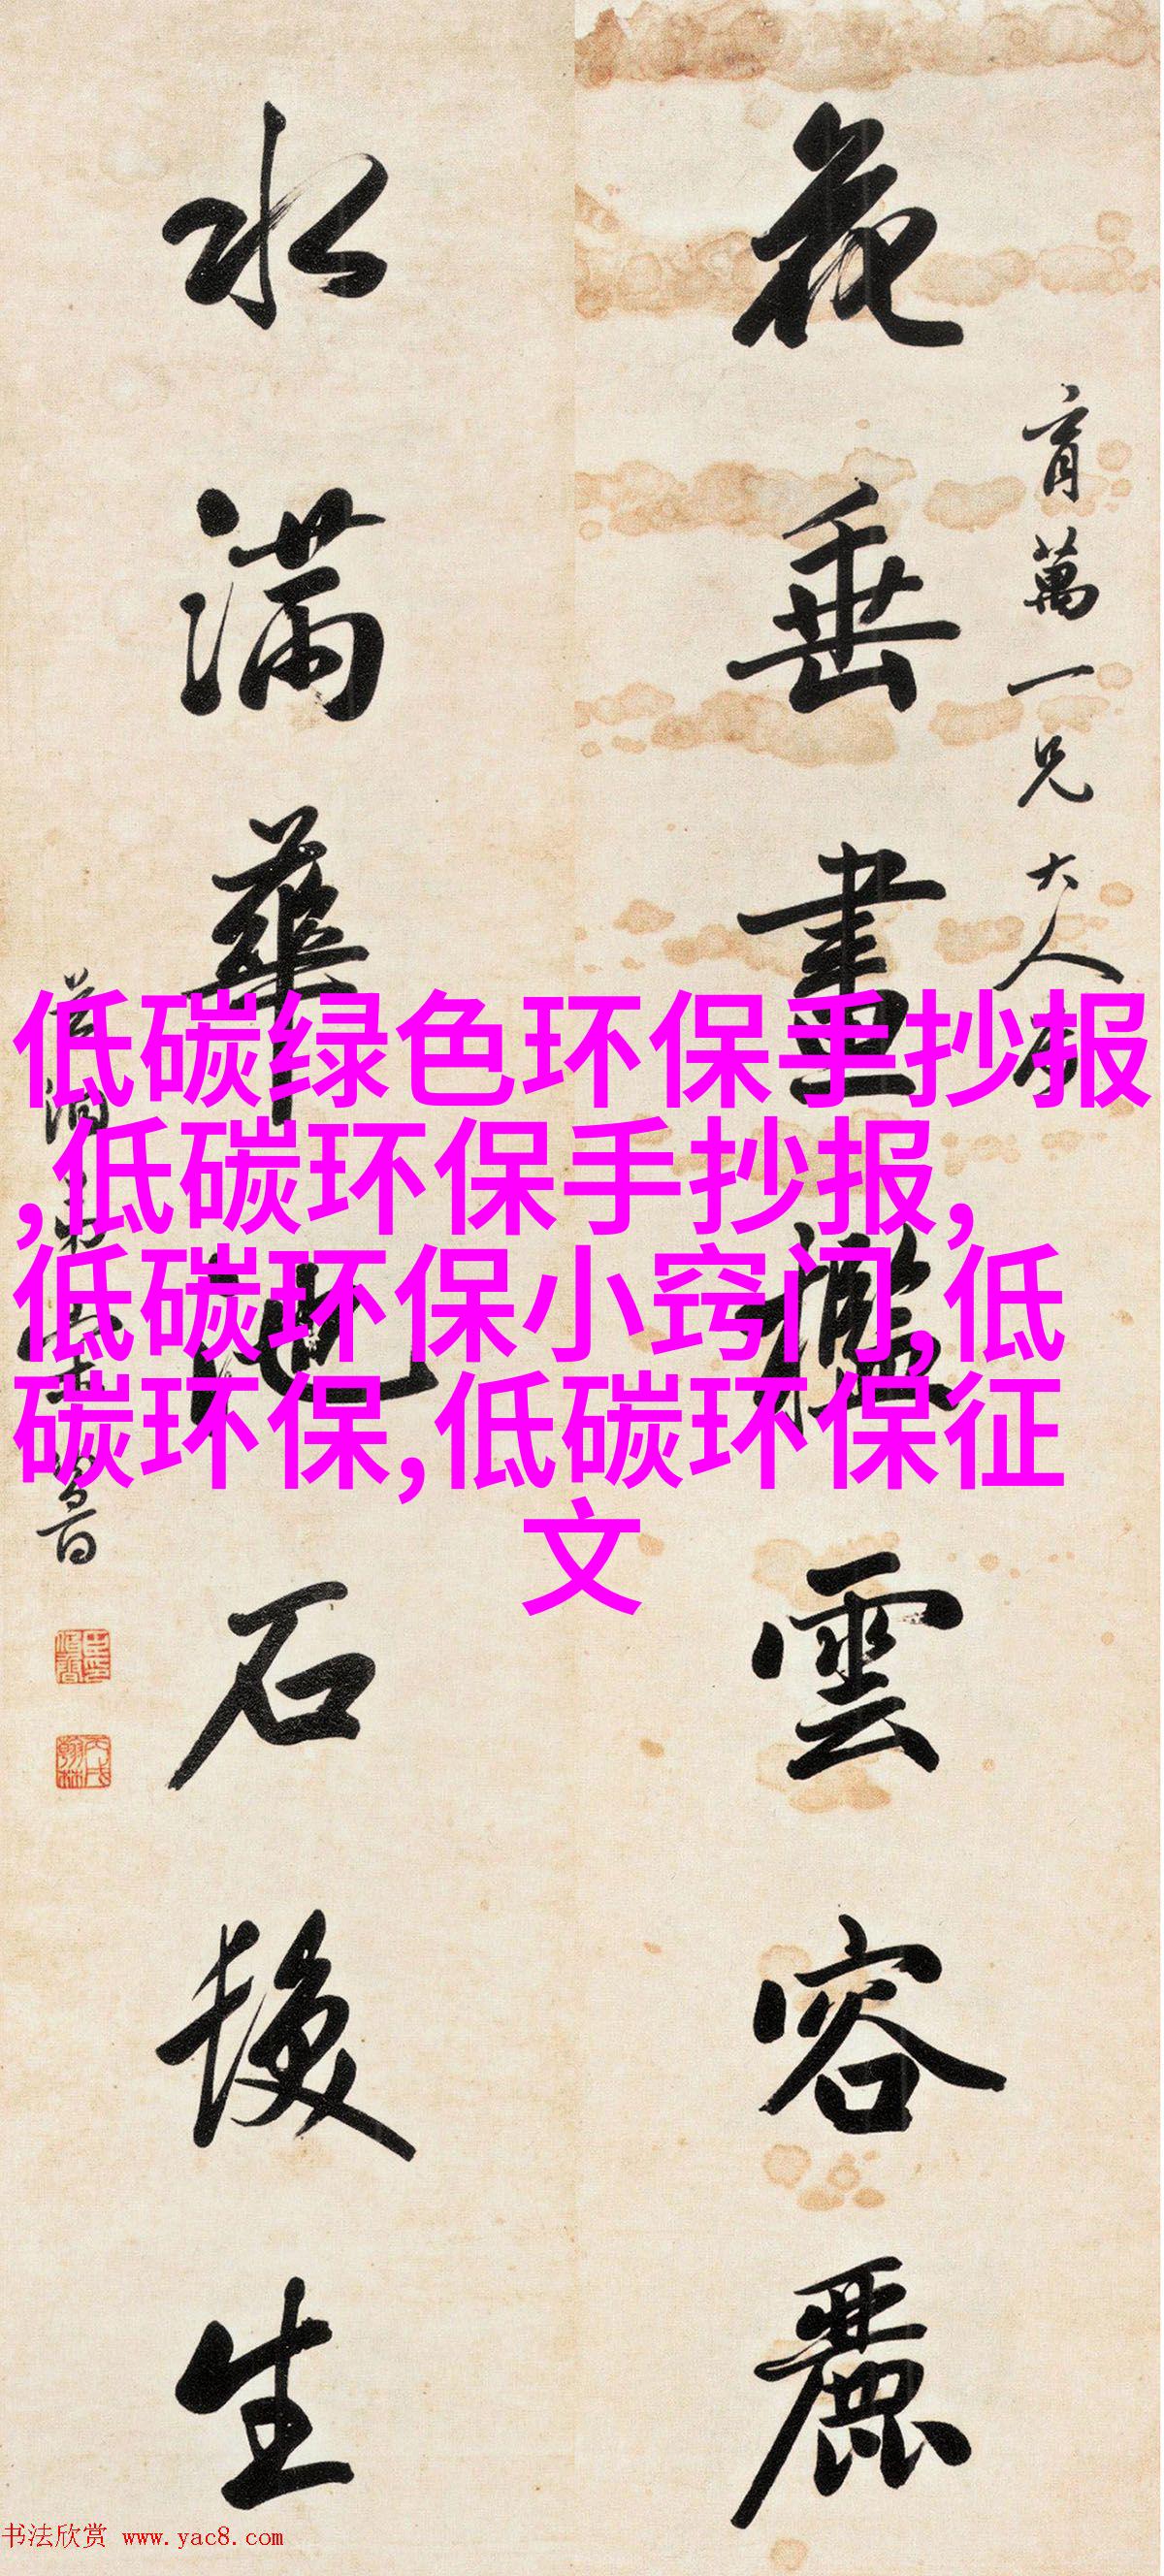 花垂畫檻雲容麗
育萬一兄大人
水滿華池石
生
低碳绿色环保手抄报
,低碳环保手抄报,
低碳环保小窍门,低
碳环保,低碳环保征
文
书法欣赏 www.yac8.com